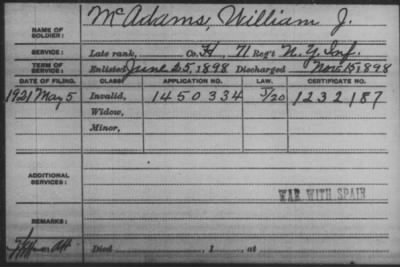 NAME OF SOLDIER: McAdams, William J.
SERVICE: Late rank, Co. H, 71 Reg't N.Y. Inf.
TERM OF SERVICE: Enlisted June 25, 1898 Discharged Nov. 15 1898
DATE OF FILING. CLASS. APPLICATION NO. LAW. CERTIFICATE NO.
1921 May 5 Invalid, 1450334 1232187
Widow,
Minor,
ADDITIONAL SERVICES:
WAR WITH SPAIN
REMARKS:
Died , 1 , at